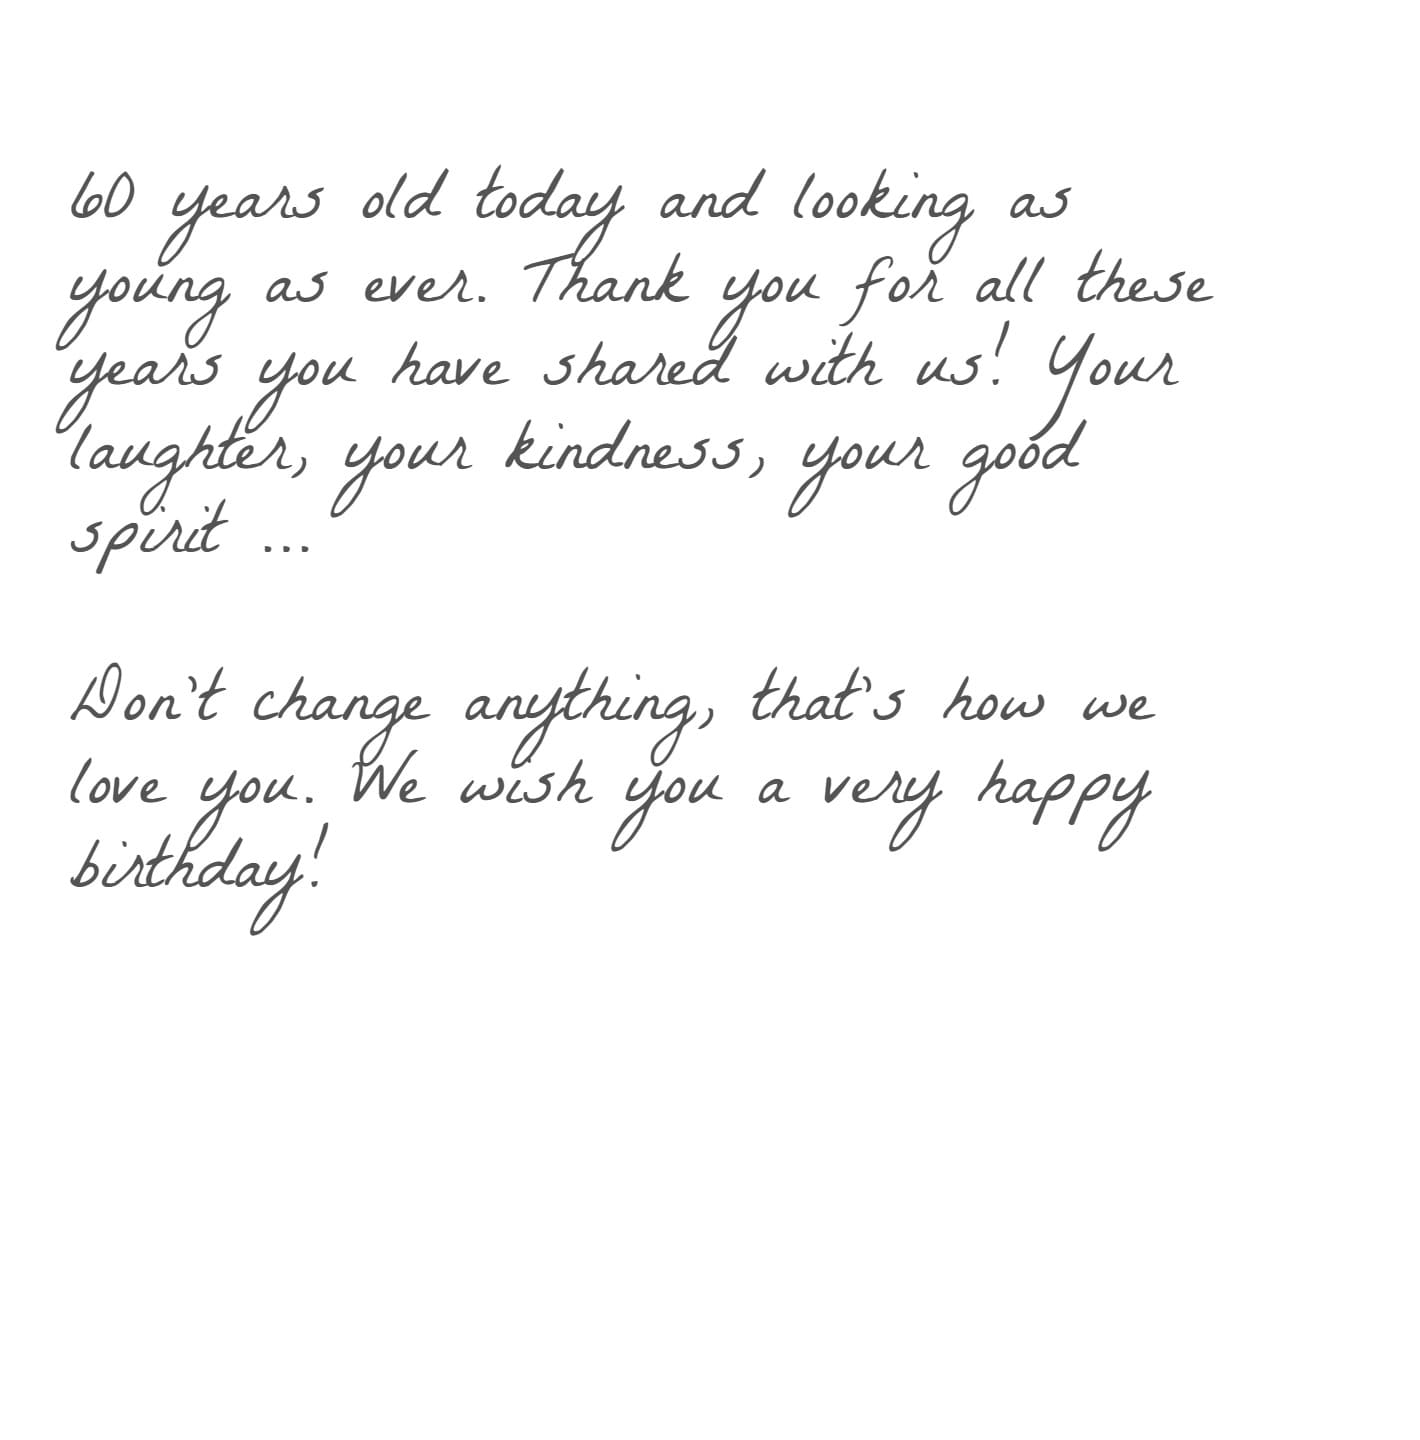 60 years old today and looking as
young as ever. Thank you for all these
years you have shared with us! Your
laughter, your kindness, your good
spirit ...
Don't change anything, that's how we
love you. We wish you a very happy
birthday!